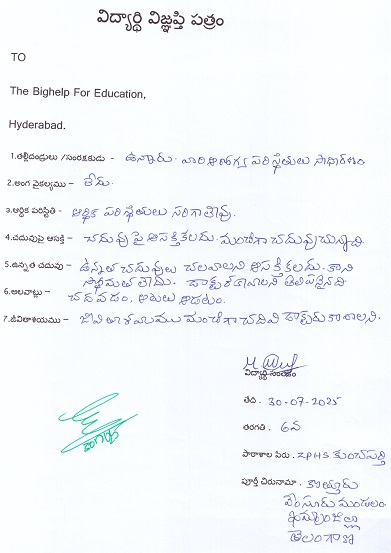 విద్యార్థి విజ్ఞప్తి పత్రం
TO
The Bighelp For Education,
Hyderabad.
1.తల్లిదండ్రులు /సంరక్షకుడు - ఉన్నారు. వారి ఆరోగ్య పరిస్థితులు సాధారణం
2.అంగ వైకల్యము - లేదు.
3.ఆర్థిక పరిస్థితి - ఆర్థిక పరిస్థితులు సరిగాలేవు.
4.చదువుపై ఆసక్తి - చదువు పై ఆసక్తికలదు. మంచిగా చదువుచున్నది
5.ఉన్నత చదువు - ఉన్నత చదువులు చదవాలని ఆసక్తికలదు. కాని
స్థోమత లేదు. డాక్టర్ కావాలని తెలిపినది
6.అలవాట్లు - చదవడం, ఆటలు ఆడటం.
7.జీవితాశయము - జీవితాశయము మంచిగా చదివి డాక్టరు కావాలని.
విద్యార్థి సంతకం
తేది . 30-07-2025
తరగతి . 6వ
పాఠాశాల పేరు . ZPHS కుంచపర్తి
పూర్తి చిరునామా . కొత్తూరు
వేంసూరు మండలం
ఖమ్మంజిల్లా
తెలంగాణ